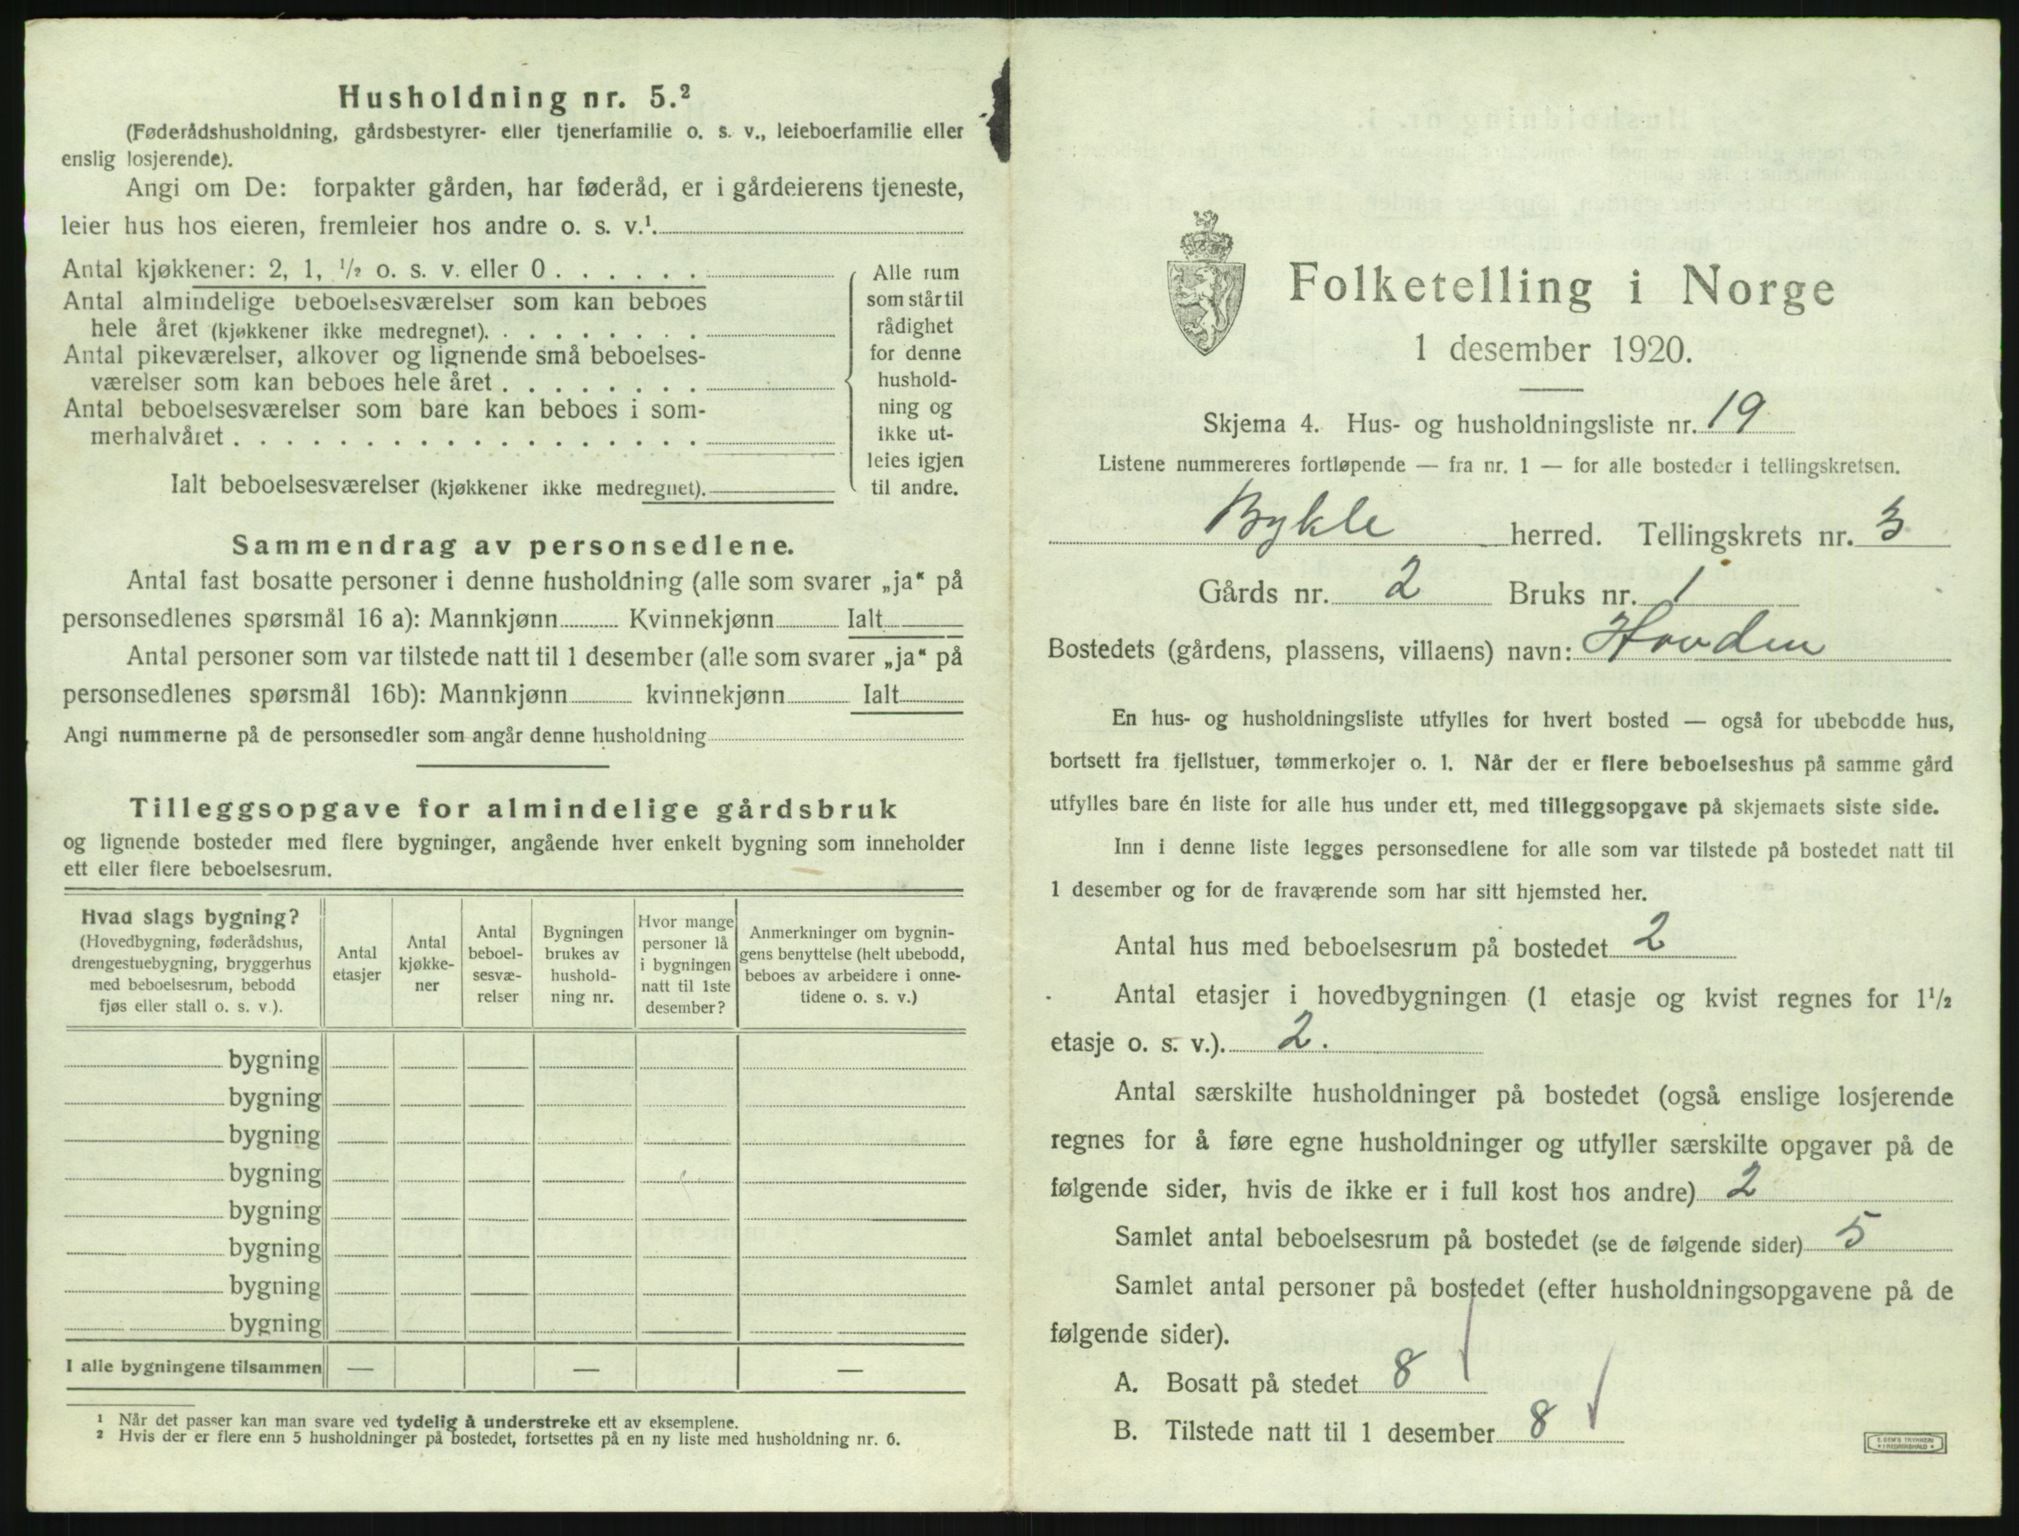 Husholdning nr. 5.²
(Føderådshusholdning, gårdsbestyrer- eller tjenerfamilie o. s. v., leieboerfamilie eller
enslig losjerende).
Angi om De: forpakter gården, har føderåd, er i gårdeierens tjeneste,
leier hus hos eieren, fremleier hos andre o. s. v.¹.
Antal kjøkkener: 2, 1, ½ o. s. v. eller 0 . . . . . .
Antal almindelige beboelsesværelser som kan beboes
hele året (kjøkkener ikke medregnet). . . . . . . . .
Antal pikeværelser, alkover og lignende små beboelses-
værelser som kan beboes hele året . . . . . . . .
Antal beboelsesværelser som bare kan beboes i som-
merhalvåret . . . . . . . . . . . . . . . . . .
Ialt beboelsesværelser (kjøkkener ikke medregnet).
Alle rum
som står til
rådighet
for denne
hushold-
ning og
ikke ut-
leies igjen
til andre.
Sammendrag av personsedlene.
Antal fast bosatte personer i denne husholdning (alle som svarer „ja“ på
personsedlenes spørsmål 16 a): Mannkjønn Kvinnekjønn Ialt
Antal personer som var tilstede natt til 1 desember (alle som svarer „ja“ på
personsedlenes spørsmål 16b): Mannkjønn kvinnekjønn Ialt
Angi nummerne på de personsedler som angår denne husholdning
Tilleggsopgave for almindelige gårdsbruk
og lignende bosteder med flere bygninger, angående hver enkelt bygning som inneholder
ett eller flere beboelsesrum.
Hvad slags bygning?
(Hovedbygning, føderådshus,
drengestuebygning, bryggerhus
med beboelsesrum, bebodd
fjøs eller stall o. s. v.).
Antal
etasjer
Antal
kjøkke-
ner
Antal
beboel-
sesvæ-
relser
Bygningen
brukes av
hushold-
ning nr.
Hvor mange
personer lå
i bygningen
natt til 1ste
desember?
Anmerkninger om bygnin-
gens benyttelse (helt ubebodd,
beboes av arbeidere i onne-
tidene o. s. v.)
bygning
bygning
bygning
bygning
bygning
bygning
bygning
bygning
I alle bygningene tilsammen — — —
¹ Når det passer kan man svare ved tydelig å understreke ett av eksemplene.
² Hvis der er flere enn 5 husholdninger på bostedet, fortsettes på en ny liste med husholdning nr. 6.
Folketelling i Norge
1 desember 1920.
Skjema 4. Hus- og husholdningsliste nr. 19
Listene nummereres fortløpende — fra nr. 1 — for alle bosteder i tellingskretsen.
Bykle herred. Tellingskrets nr. 3
Gårds nr. 2 Bruks nr. 1
Bostedets (gårdens, plassens, villaens) navn: Hovden
En hus- og husholdningsliste utfylles for hvert bosted — også for ubebodde hus,
bortsett fra fjellstuer, tømmerkojer o. l. Når der er flere beboelseshus på samme gård
utfylles bare én liste for alle hus under ett, med tilleggsopgave på skjemaets siste side.
Inn i denne liste legges personsedlene for alle som var tilstede på bostedet natt til
1 desember og for de fraværende som har sitt hjemsted her.
Antal hus med beboelsesrum på bostedet 2
Antal etasjer i hovedbygningen (1 etasje og kvist regnes for 1½
etasje o. s. v.). 2.
Antal særskilte husholdninger på bostedet (også enslige losjerende
regnes for å føre egne husholdninger og utfyller særskilte opgaver på de
følgende sider, hvis de ikke er i full kost hos andre) 2
Samlet antal beboelsesrum på bostedet (se de følgende sider) 5
Samlet antal personer på bostedet (efter husholdningsopgavene på de
følgende sider).
A. Bosatt på stedet 8
B. Tilstede natt til 1 desember 8